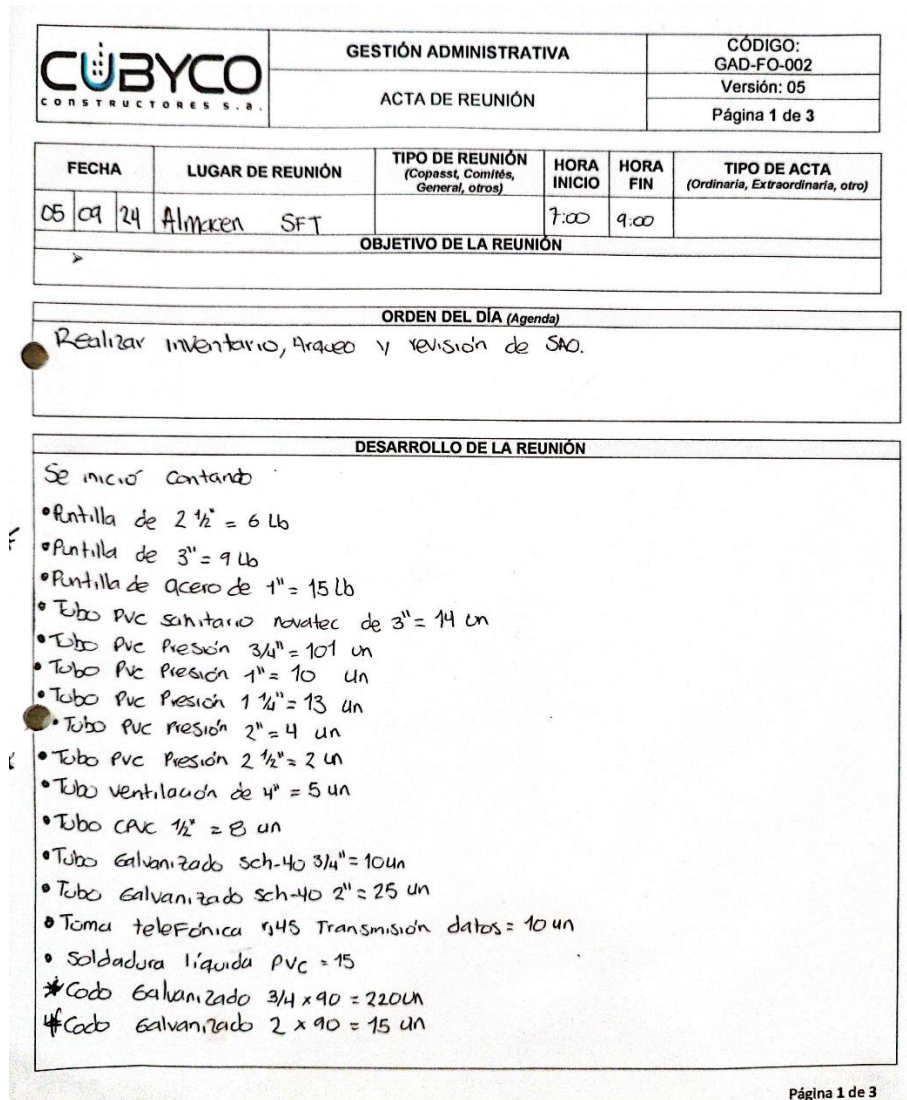 CUBYCO
CONSTRUCTORES s.a.
GESTIÓN ADMINISTRATIVA
ACTA DE REUNIÓN
CÓDIGO:
GAD-FO-002
Versión: 05
Página 1 de 3
FECHA
LUGAR DE REUNIÓN
TIPO DE REUNIÓN
(Copasst, Comités,
General, otros)
HORA
INICIO
HORA
FIN
TIPO DE ACTA
(Ordinaria, Extraordinaria, otro)
05 09 24 Almacen SFT 7:00 9:00
OBJETIVO DE LA REUNIÓN
➢
ORDEN DEL DÍA (Agenda)
Realizar inventario, Arqueo y revisión de SAO.
DESARROLLO DE LA REUNIÓN
Se inició Contando
• Puntilla de 2 ½" = 6 Lb
• Puntilla de 3" = 9 Lb
• Puntilla de acero de 1" = 15 lb
• Tubo PVC sanitario novatec de 3" = 14 un
• Tubo PVC Presión 3/4" = 101 un
• Tubo PVC Presión 1" = 10 un
• Tubo PVC Presión 1 ¼" = 13 un
• Tubo PVC Presión 2" = 4 un
• Tubo PVC Presión 2 ½" = 2 un
• Tubo ventilación de 4" = 5 un
• Tubo CPVC ½" = 8 un
• Tubo Galvanizado sch-40 3/4" = 10un
• Tubo Galvanizado sch-40 2" = 25 un
• Toma teleFónica rj45 Transmisión datos = 10 un
• Soldadura líquida PVC = 15
* Codo Galvanizado 3/4 x 90 = 220un
* Codo Galvanizado 2 x 90 = 15 un
Página 1 de 3